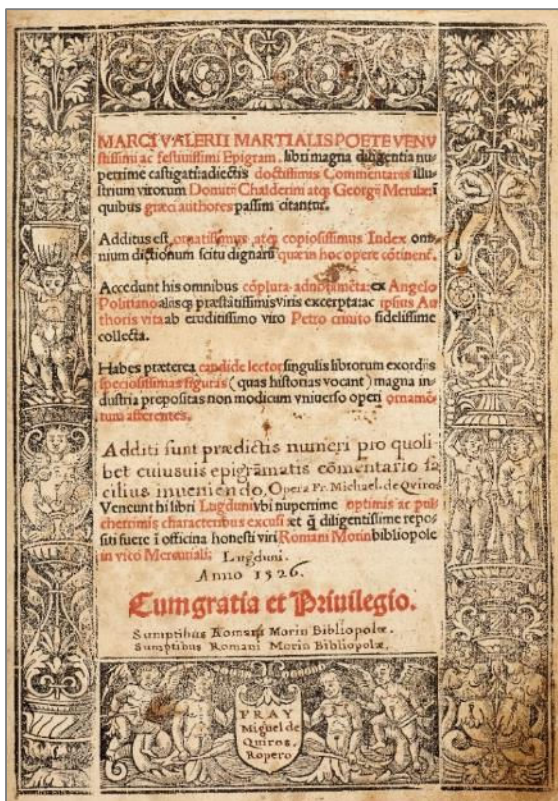 MARCI VALERII MARTIALIS POETE VENV
stissimi ac festiuissimi Epigram. libri magna diligentia nu-
perrime castigati: adiectis doctissimis Commentariis illu-
strium virorum Domitii Chalderini atq; Georgii Merulæ: ī
quibus græci authores passim citantur.
Additus est ornatissimus atq; copiosissimus Index om-
nium dictionum scitu dignarū quæ in hoc opere cōtinent.
Accedunt his omnibus cōplura adnotamēta: ex Angelo
Politiano aliisq; præstātissimis viris excerpta: ac ipsius Au
thoris vita ab eruditissimo viro Petro crinito fidelissime
collecta.
Habes præterea candide lector singulis librorum exordiis
speciosissimas figuras (quas historias vocant) magna in-
dustria prepositas non modicum vniuerso operi ornamē-
tum afferentes.
Additi sunt prædictis numeri pro quoli
bet cuiusuis epigrāmatis cōmentario fa
cilius inueniendo, Opera Fr. Michael. de Quiros
Veneunt hi libri Lugduni vbi nuperrime optimis ac pul
cherrimis characteribus excusi æt q̄ diligentissime repo-
siti fuere ī officina honesti viri Romani Morin bibliopole
in vico Mercuriali: Lugduni.
Anno 1526.
Cum gratia et Priuilegio.
Sumptibus Romani Morin Bibliopolæ.
Sumptibus Romani Morin Bibliopolæ.
FRAY
Miguel de
Quiros.
Ropero